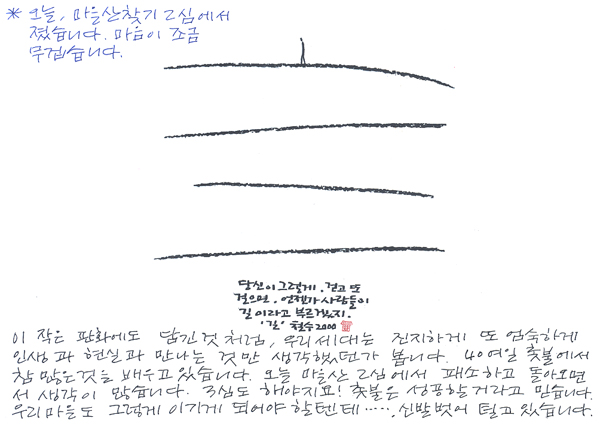 * 오늘, 마을산찾기 2심에서
졌습니다. 마음이 조금
무겁습니다.
당신이 그렇게, 걷고 또
걸으면, 언젠가 사람들이
길이라고 부르겠지.
'길' 철수 2000
이 작은 판화에도 담긴것처럼, 우리세대는 진지하게 또 엄숙하게
인생과 현실과 만나는 것만 생각했던가 봅니다. 40여일 촛불에서
참 많은것을 배우고 있습니다. 오늘 마을산 2심에서 패소하고 돌아오면
서 생각이 많습니다. 3심도 해야지요! 촛불은 성공할거라고 믿습니다.
우리마을도 그렇게 이기게 되어야 할텐데‥‥‥, 신발벗어 털고 있습니다.